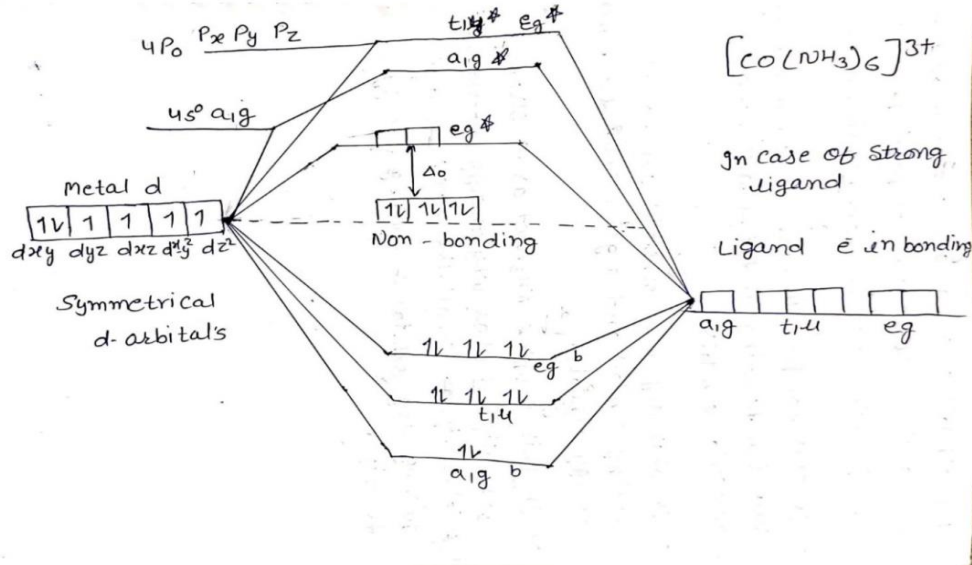 t₁u* Eg*
4P₀ Px Py Pz
a₁g *
[CO(NH₃)₆]³⁺
4s⁰ a₁g
eg *
Δ₀
In case of strong ligand
Metal d
1L 1 1 1 1
1L 1L 1L
dxy dyz dxz dx²y² dz²
Non - bonding
Ligand ē in bonding
Symmetrical
d-arbital's
a₁g t₁u eg
1L 1L 1L
eg b
1L 1L 1L
t₁u
1L
a₁g b